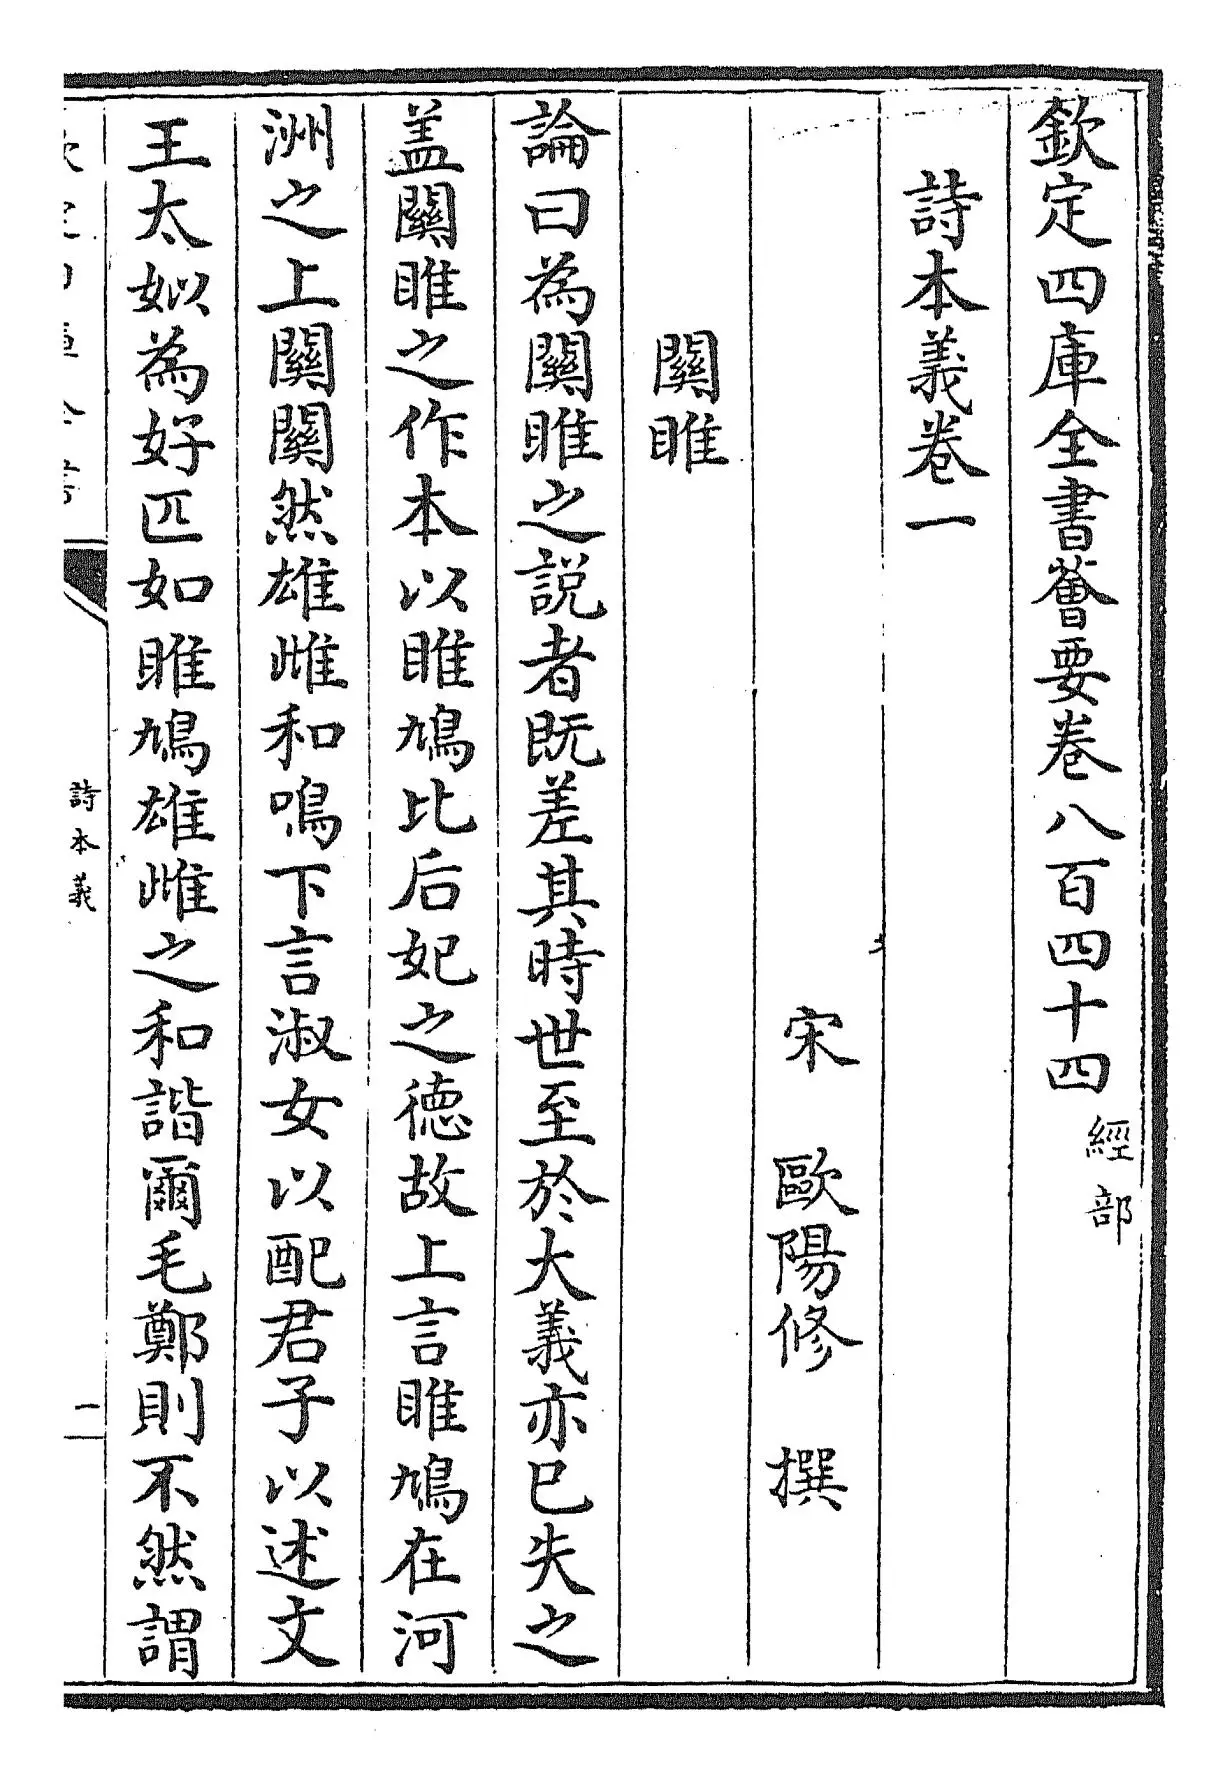 欽定四庫全書薈要卷八百四十四 經部
詩本義卷一
宋 歐陽修 撰
關雎
論曰為關雎之說者既差其時世至於大義亦已失之
盖關雎之作本以雎鳩比后妃之德故上言雎鳩在河
洲之上關關然雄雌和鳴下言淑女以配君子以述文
王太姒為好匹如雎鳩雄雌之和諧爾毛鄭則不然謂
詩本義
一